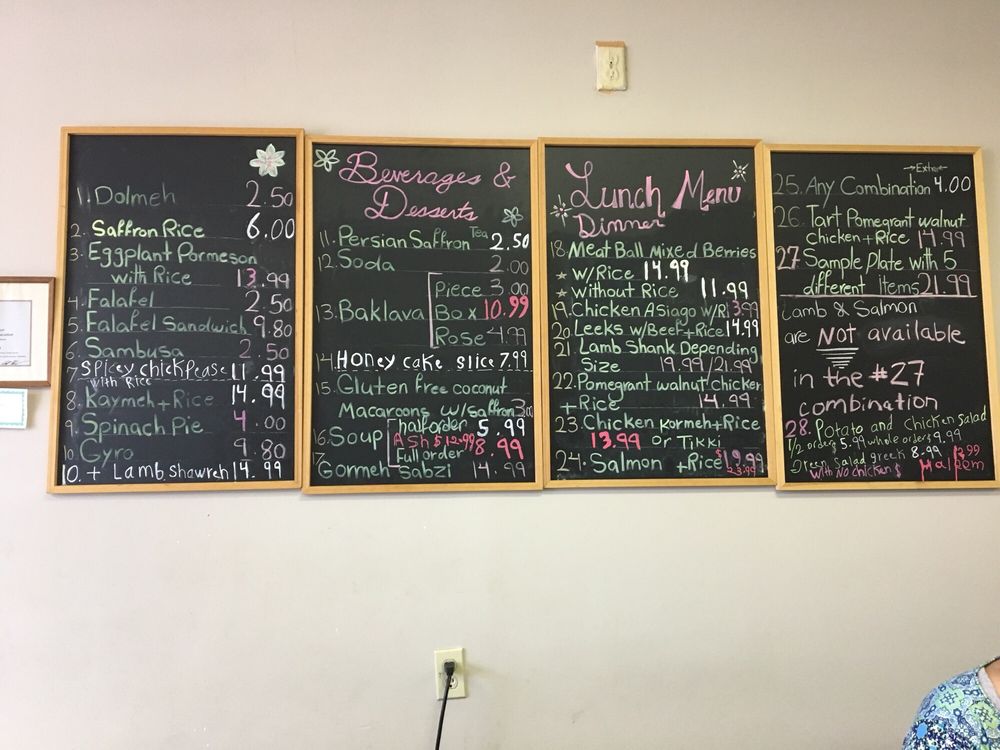 1. Dolmeh 2.50
2. Saffron Rice 6.00
3. Eggplant Parmeson
with Rice 13.99
4. Falafel 2.50
5. Falafel Sandwich 9.80
6. Sambusa 2.50
7 Spicey chickpease 11.99
with Rice
8. Kaymeh + Rice 14.99
9. Spinach Pie 4.00
10. Gyro 9.80
10. + Lamb Shawreh 14.99
Beverages &
Desserts
11. Persian Saffron Tea 2.50
12. Soda 2.00
Piece 3.00
13. Baklava Box 10.99
Rose 4.99
14. Honey cake slice 7.99
15. Gluten free coconut
Macaroons w/saffron 3.00
half order 5.99
16. Soup ASh 8.99
Full order
17. Gormeh Sabzi 14.99
Lunch Menu
Dinner
18. Meat Ball Mixed Berries
w/Rice 14.99
without Rice 11.99
19. Chicken Asiago w/Ri 13.99
20. Leeks w/Beef + Rice 14.99
21. Lamb Shank Depending
Size 19.99/21.99
22. Pomegrant walnut Chicken
+ Rice 14.99
23. Chicken Kormeh + Rice
13.99 or Tikki
24. Salmon + Rice $19.99
23.99
Extra
25. Any Combination 4.00
26. Tart Pomegrant walnut
Chicken + Rice 14.99
27 Sample Plate with 5
different Items 21.99
Lamb & Salmon
are NOT available
in the #27
combination
28. Potato and Chicken salad
1/2 order 5.99 whole order 9.99
Green salad greek 8.99
with no chicken